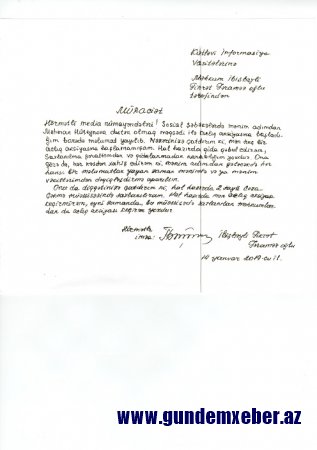 Kütləvi İnformasiya
Vasitələrinə
Məhkum İbişbəyli
Fikrət Faramaz oğlu
tərəfindən
MÜRACİƏT
Hörmətli media nümayəndələri! Sosial şəbəkələrdə mənim adımdan
Mehman Hüseynova dəstək olmaq məqsədi ilə aclıq aksiyasına başladı-
ğım barədə məlumat yayılıb. Nəzərinizə çatdırım ki, mən heç bir
aclıq aksiyasına başlamamışam. Hal hazırda qida qəbul edirəm.
Saxlanılma şəraitimdən və qidalanmadan narazılığım yoxdur. Ona
görə də, hər kəsdən xahiş edirəm ki, mənim adımdan
hansı bir məlumatları yayan zaman mənimlə və ya mənim
vəkillərimdən dəqiqləşdirmə aparılsın.
Onu da diqqətinizə çatdırım ki, hal hazırda 2 saylı Cəza
Çəkmə müəssisəsində saxlanılıram. Hal hazırda mən aclıq aksiyası
keçirmirəm, eyni zamanda, bu müəssisədə saxlanılan məhkumlar-
dan da aclıq aksiyası keçirən yoxdur.
Hörmətlə
imza:
İbişbəyli Fikrət
Faramaz oğlu
10 yanvar 2019-cu il.
www.gundemxeber.az